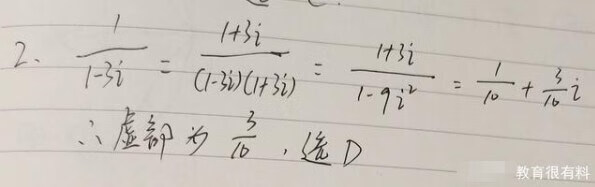 2、1/(1-3i) = (1+3i)/((1-3i)(1+3i)) = (1+3i)/(1-9i²) = 1/10 + 3/10 i
∴虚部为 3/10 ，选D
教育很有料